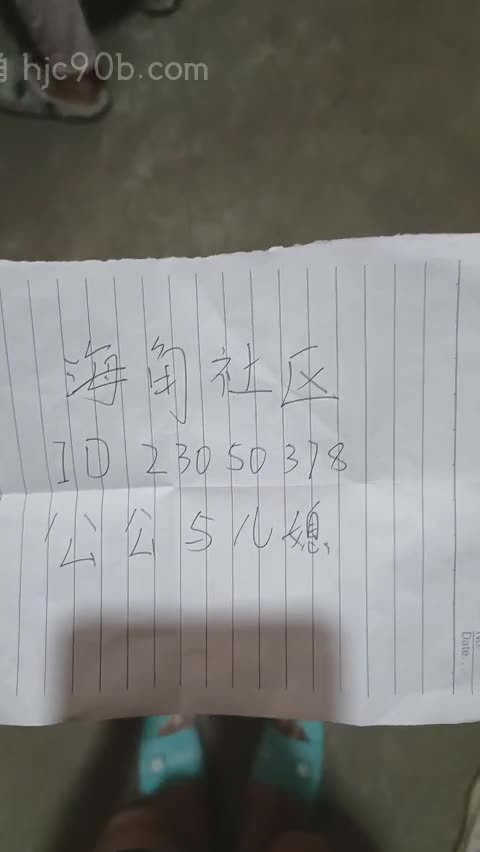 角 hjc90b.com
海角社区
ID 23050378
公公与儿媳
No
Date...